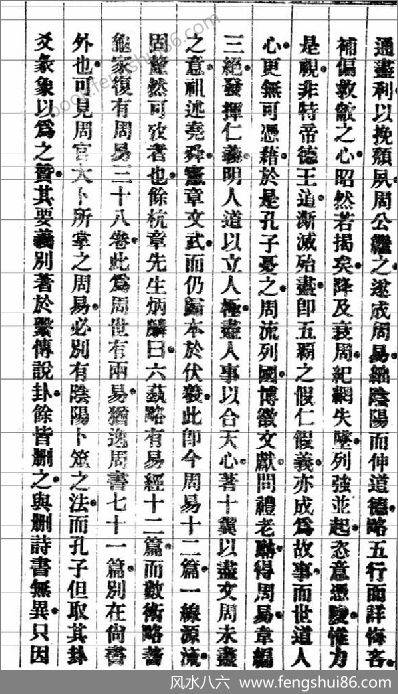 通盡利以挽頹風周公繼之遂成周易絀陰陽而伸道德略五行而詳悔吝
補偏救敝之心昭然若揭矣降及衰周紀綱失墜列強並起恣意憑陵惟力
是視非特帝德王道漸滅殆盡卽五覇之假仁假義亦成爲故事而世道人
心更無可憑藉於是孔子憂之周流列國博徵文獻問禮老聃得周易韋編
三絕發揮仁義明人道以立人極盡人事以合天心著十翼以盡文周未盡
之意祖述堯舜憲章文武而仍歸本於伏羲此卽今周易十二篇一線源流
固釐然可攷者也餘杭章先生炳麟曰六藝略有易經十二篇而數術略蓍
龜家復有周易三十八卷此爲周世有兩易猶逸周書七十一篇別在尙書
外也可見周官大卜所掌之周易必別有陰陽卜筮之法而孔子但取其卦
爻彖象以爲之贊其要義別著於繫傳說卦餘皆刪之與刪詩書無異只因
fengshui86.com
风水八六 www.fengshui86.com